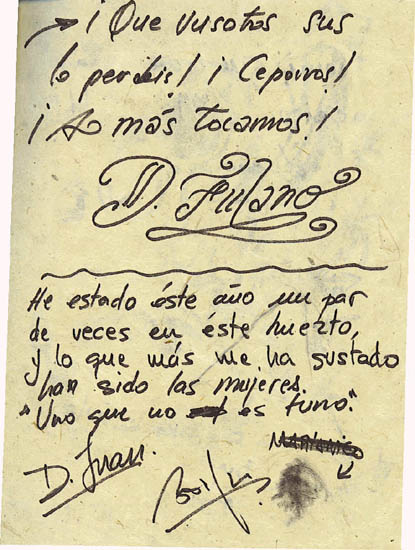 ¡Que vusotros sus
lo perdéis! ¡Ceporros!
¡A más tocamos!
D. Fulano
He estado éste año un par
de veces en éste huerto,
y lo que más me ha gustado
han sido las mujeres.
"Uno que no es tuno."
D. Juan.